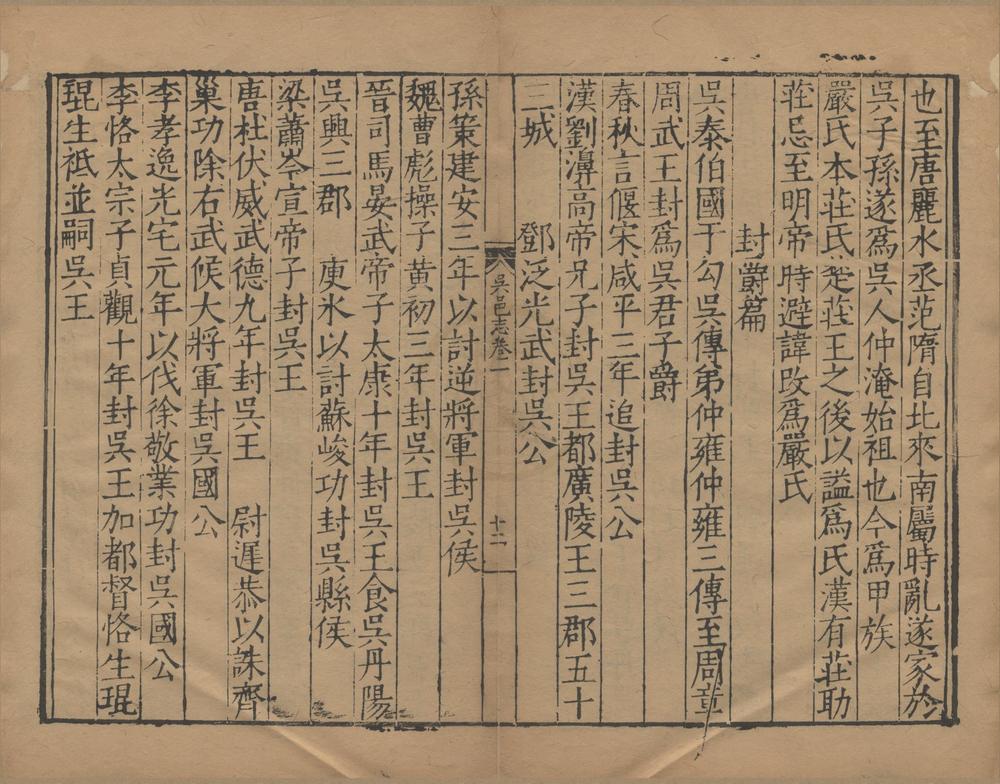 也至唐麗水丞范隋自北來南屬時亂遂家於
吳子孫遂爲吳人仲淹始祖也今爲甲族
嚴氏本莊氏楚莊王之後以謚爲氏漢有莊助
莊忌至明帝時避諱改爲嚴氏
封爵篇
吳泰伯國于勾吳傳弟仲雍仲雍三傳至周章
周武王封爲吳君子爵
春秋言偃宋咸平三年追封吳公
漢劉濞高帝兄子封吳王都廣陵王三郡五十
三城　鄧泛光武封吳公
吳邑志卷一　十二
孫策建安三年以討逆將軍封吳侯
魏曹彪操子黃初三年封吳王
晉司馬晏武帝子太康十年封吳王食吳丹陽
吳興三郡　庾氷以討蘇峻功封吳縣侯
梁蕭岑宣帝子封吳王
唐杜伏威武德九年封吳王　尉遲恭以誅齊
巢功除右武候大將軍封吳國公
李孝逸光宅元年以伐徐敬業功封吳國公
李恪太宗子貞觀十年封吳王加都督恪生琨
琨生祗並嗣吳王